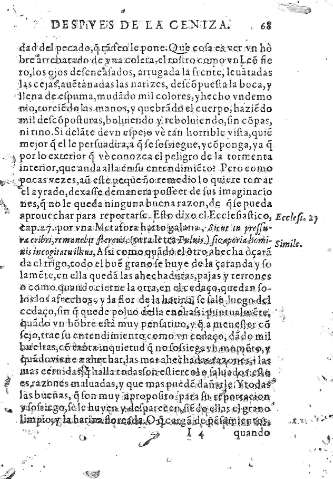 DESPVES DE LA CENIZA. 68
dad del pecado, q̃ tã feo le pone. Que cosa es ver vn hõ
bre arrebatado de vna colera, el rostro como vn Leõ fie
ro, los ojos desencasados, arrugada la frente, leuãtadas
las cejas, auẽtanadas las narizes, descõpuesta la boca, y
llena de espuma, mudado mil colores, y hecho vn demo
nio, torciẽdo las manos, y quebrãdo el cuerpo, haziẽdo
mil descõposturas, boluiendo y reboluiendo, sin cõpas,
ni tino. Si delãte de vn espejo vè tan horrible vista, quiẽ
mejor q̃ el le persuadira, a q̃ se sossiegue, y cõponga, ya q̃
por lo exterior q̃ vè conozca el peligro de la tormenta
interior, que anda alla en su entendimiẽto? Pero como
pocas vezes, aũ este pequeño remedio lo quiere tomar
el ayrado, dexasse de manera posseer de sus imaginacio
nes, q̃ no le queda ninguna buena razon, de q̃ se pueda
aprouechar para reportarse. Esto dixo el Ecclesiastico,
cap. 27. por vna Metafora harto galana, Sicut in pressu
Eccles. 27
ra cribri, remanebit stercus, (otra letra Puluis,) sic aporia homi
nis in cogitatu illius, Assi como quãdo el otro ahecha
Simile.
el trigo, todo el buẽ grano se huye de la çaranda y so
lamẽte, en ella quedã las ahechaduras, pajas y terrones
o como quando cierne la otra, en el cedaço, quedan so
los los afrechos, y la flor de la harina se sale luego del
cedaço, sin q̃ quede poluo della en el assi puntualmẽte,
quãdo vn hõbre està muy pensatiuo, y q̃ a menester cõ
sejo, trae su entendimiento como vn cedaço, dãdo mil
bueltas, cõ
quãdo viene a ahechar, las mas ahechadas razones, las
mas cernidas q̃ halla todas son estiercol o saluados, esto
es, razones maluadas, y que mas puedẽ dañarle. Y todas
las buenas, q̃ son muy a proposito, para su reportacion
y sosiego, se le huyen y desparecen, si e do ellas el grano
limpio, y la harina floreada. O q̃ carga de pensamientos,
I 4 quando